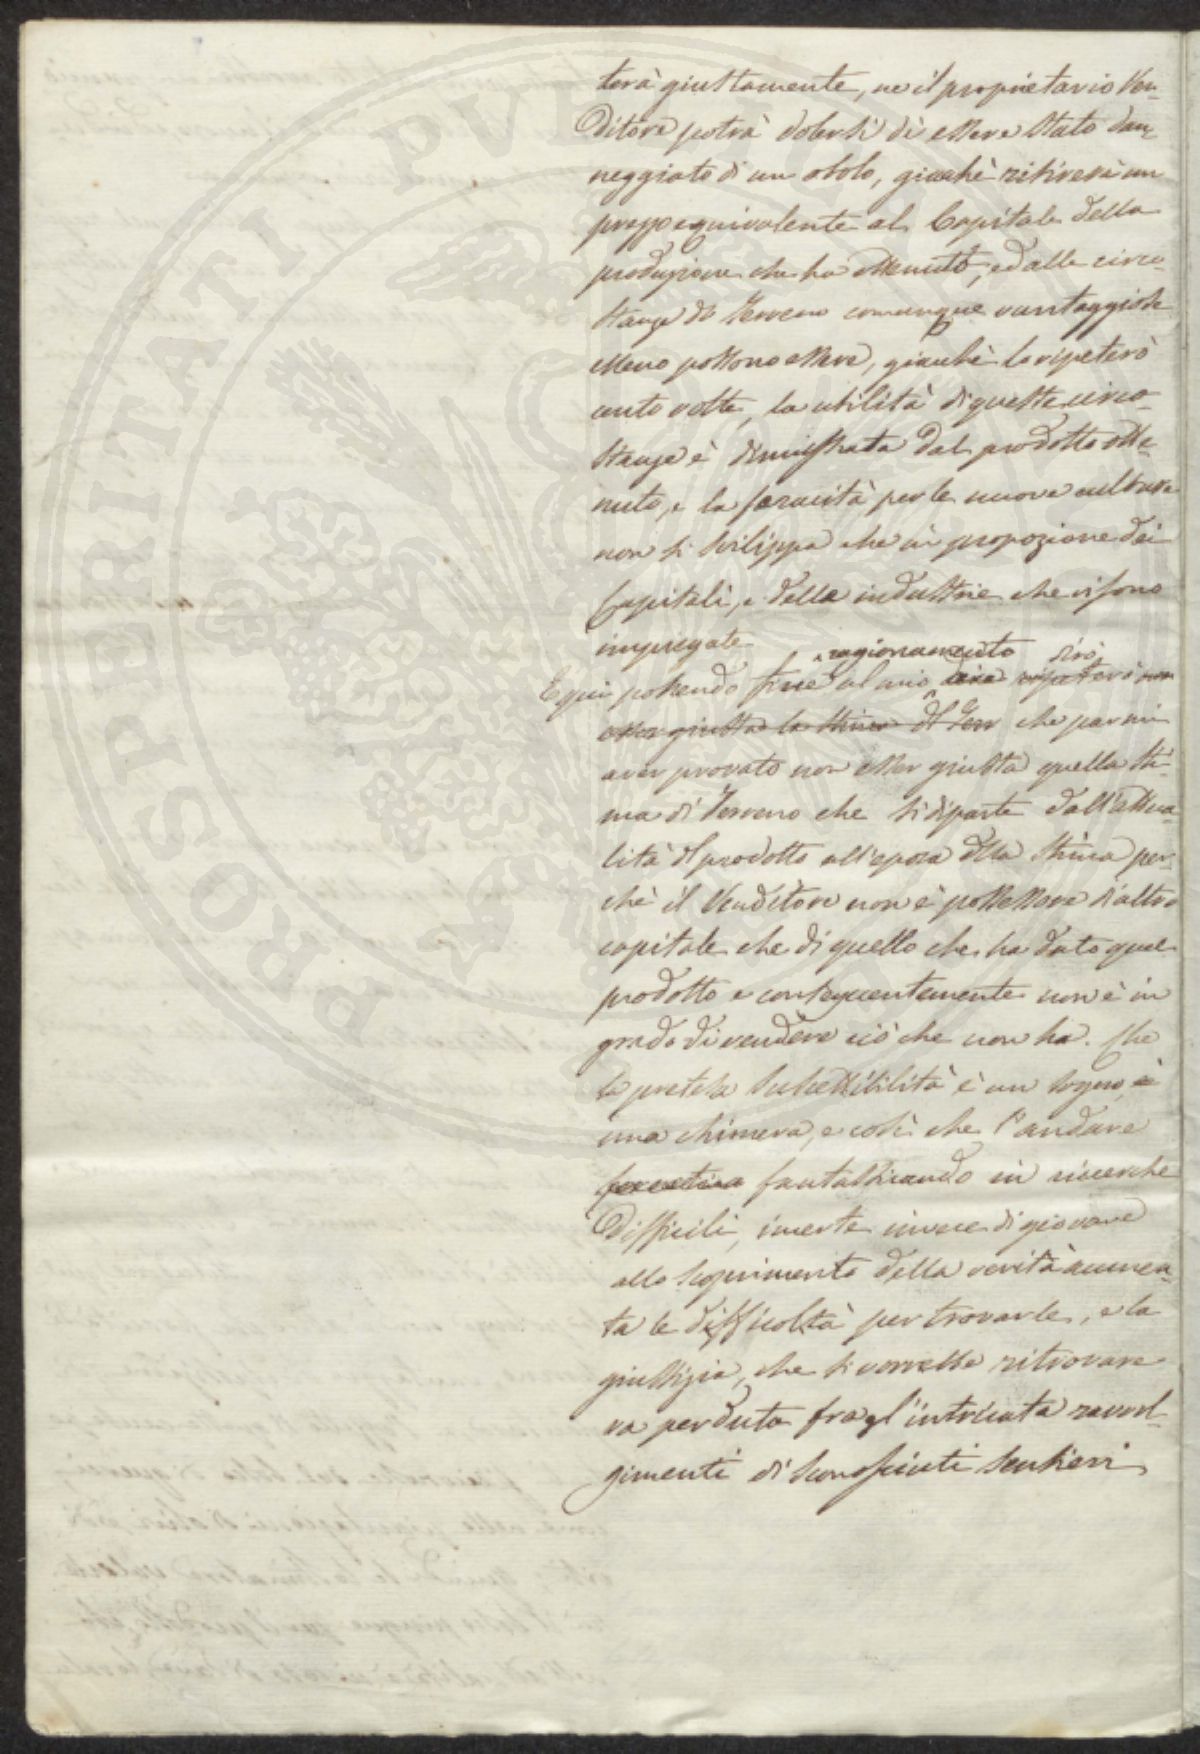 terà giustamente, ne il proprietario Ven-
ditore potrà dolersi di essere stato dan-
neggiato di un obolo, giachè ritirerà un
prezzo equivalente al Capitale della
produzione che ha ottenuto, ed alle circo-
stanze del Terreno comunque vantaggiose
elleno possono essere, giachè lo ripeterò
cento volte, la utilità di queste circo-
stanze è dimostrata dal prodotto otte-
nuto, e la feracità per le nuove culture
non si svilippa che in propozione dei
Capitali, e della industrie che vi sono
impiegate
ragionamento dirò
E qui ponendo fine al mio ripeterò non
esser giusta la stima del Terr che parmi
aver provato non esser giusta quella sti-
ma di Terreno che si diparte dall'attua-
lità del prodotto all'epoca della stima per-
chè il Venditore non è possessore di altro
capitale che di quello che ha dato quel
prodotto e conseguentemente non è in
grado di vendere ciò che non ha. Che
la pretesa suscettibilità è un sogno, è
una chimera, e così che l'andare
fantasticando in ricerche
difficili, incerte invece di giovare
allo scoprimento della verità aumen-
ta le difficoltà per trovarle, e la
giustizia, che si vorrebbe ritrovare
va perduta fra gl'intricata ravvol-
gimenti di sconosciuti sentieri
PROSPERITATI PVBLICAE